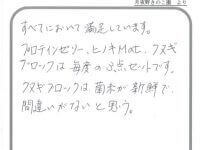 月夜野きのこ園 より
すべてにおいて満足しています。
プロテインゼリー、ヒノキMat、クヌギ
ブロックは毎度の3点セットです。
クヌギブロックは菌糸が新鮮で、
間違いがないと思う。